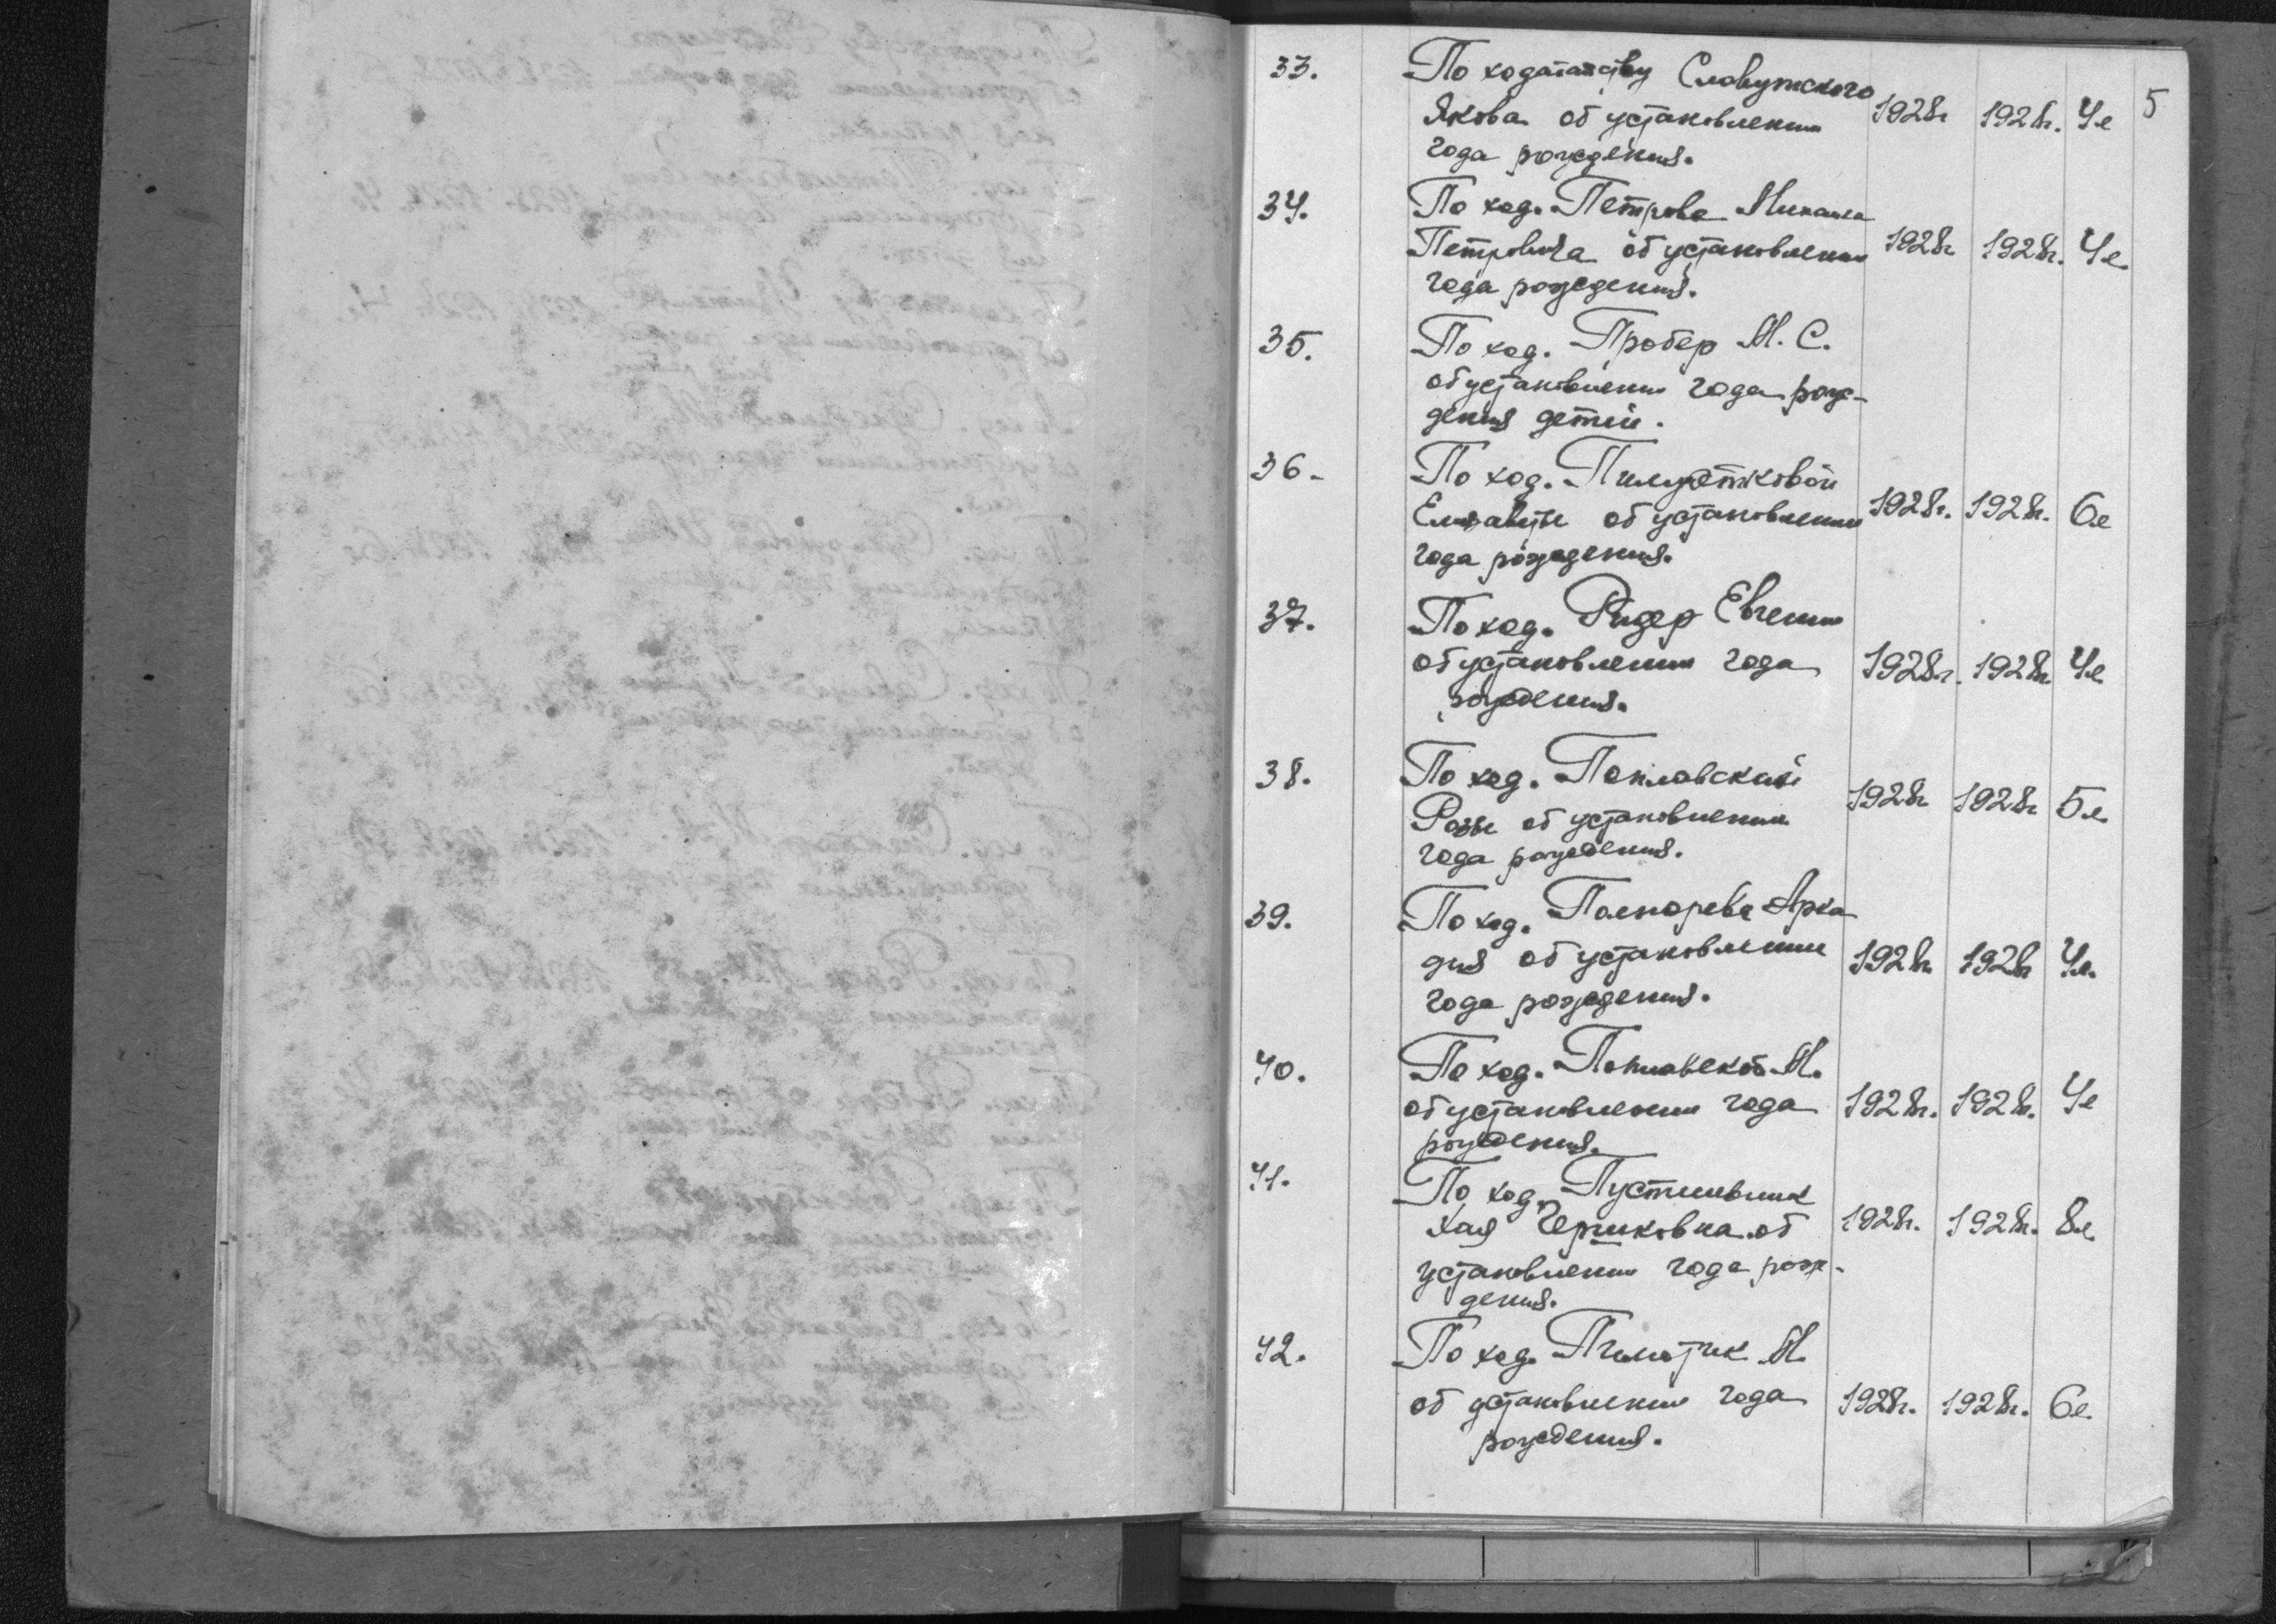 5
33. По ходатайству Славутского
Якова об установлении 1928г 1928г. 4л
года рождения.
34. По ход. Петрова Михаила
Петровича об установлении 1928г 1928г. 4л.
года рождения.
35. По ход. Пробер М. С.
об установлении года рож-
дения детей.
36. По ход.
Елизаветы об установлении 1928г. 1928г. 6л
года рождения.
37. По ход. Ридер Евгении
об установлении года 1928г. 1928г. 4л
рождения.
38. По ход. Поплавской
Розы об установлении 1928г 1928г 5л.
года рождения.
39. По ход. Арка
дия об установлении 1928г 1928г 4л.
года рождения.
40. По ход. Поплавской М.
об установлении года 1928г. 1928г. 4л
рождения.
41. По ход.
Хая об 1928г. 1928г. 8л.
установлении года рож-
дения.
42. По ход. М.
об установлении года 1928г. 1928г. 6л.
рождения.